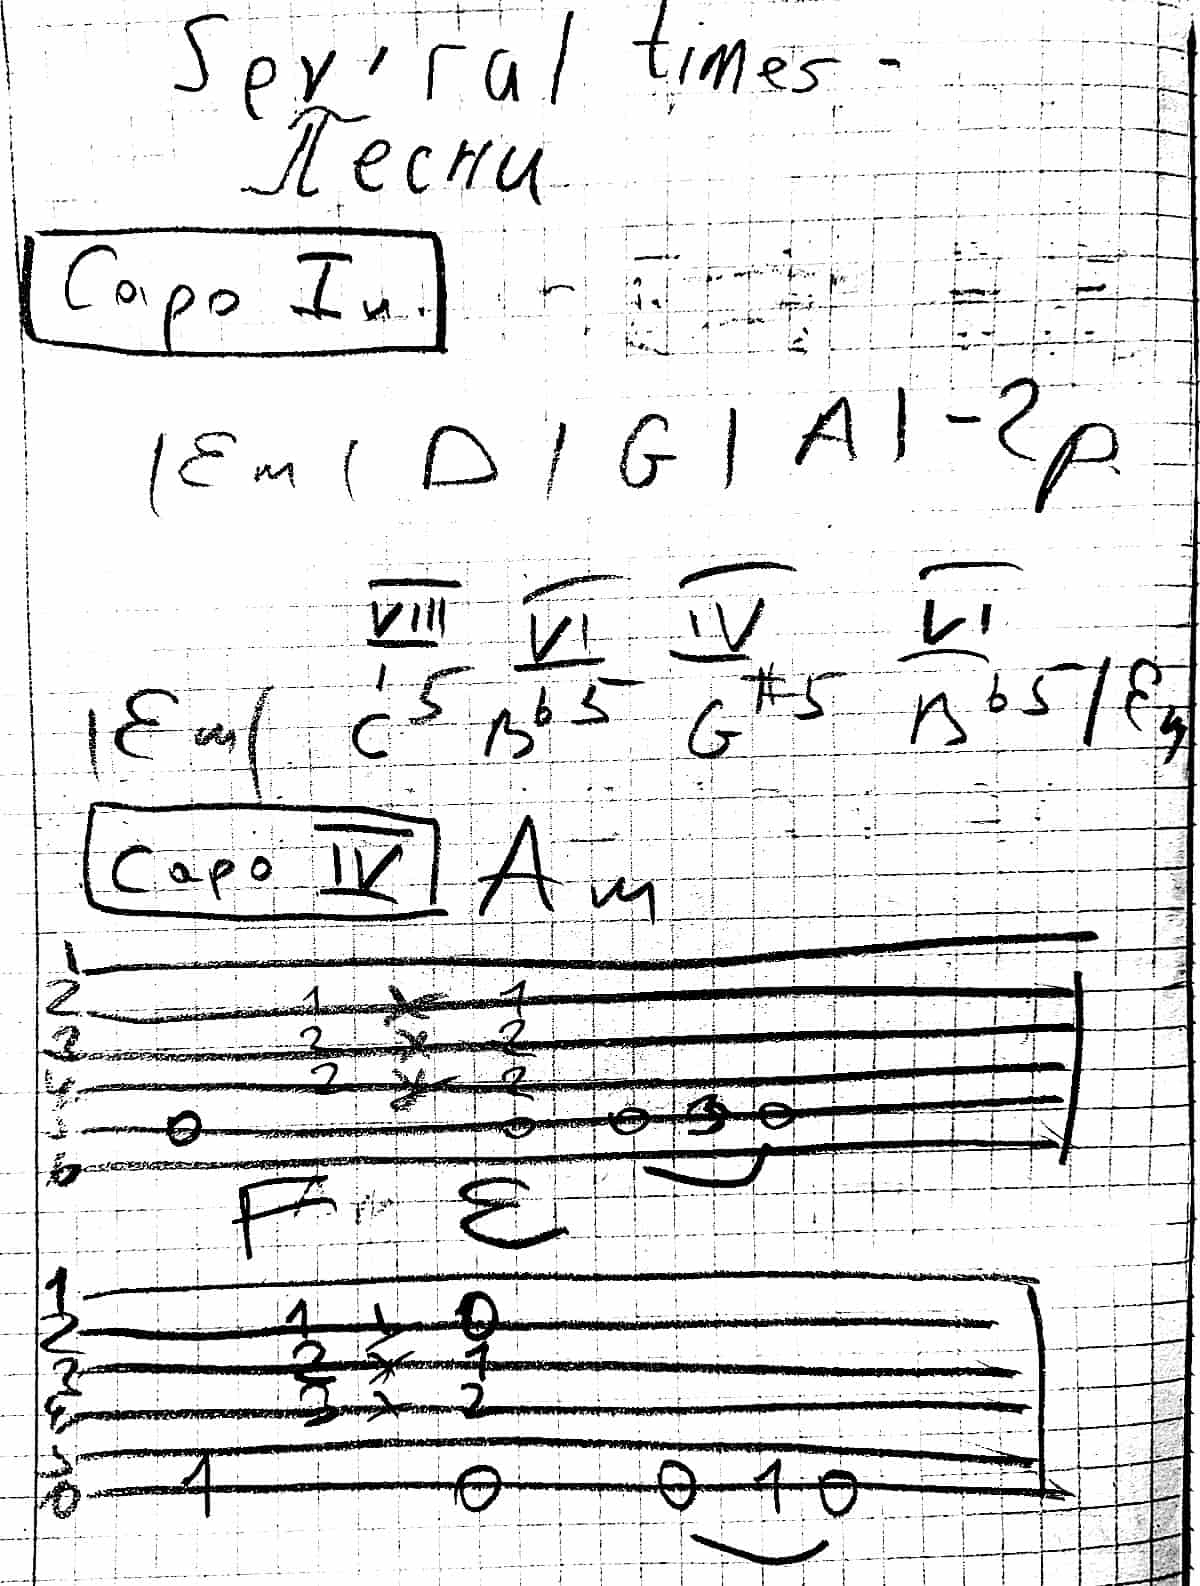 Sev'ral times -
Песни
Capo I н.
| Em | D | G | A | - 2 р
VIII VI IV VI
| Em | C5 Bb5 G#5 Bb5 | Em
Capo IV Am
1
2 1 x 1
3 2 x 2
4 2 x 2
5 0 0 0 3 0
6
F E
1
2 1 x 0
3 2 x 1
4 3 x 2
5
6 1 0 0 1 0